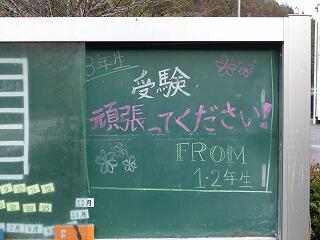 3年生
受験
頑張ってください!
FROM
1・2年生
12月
11月